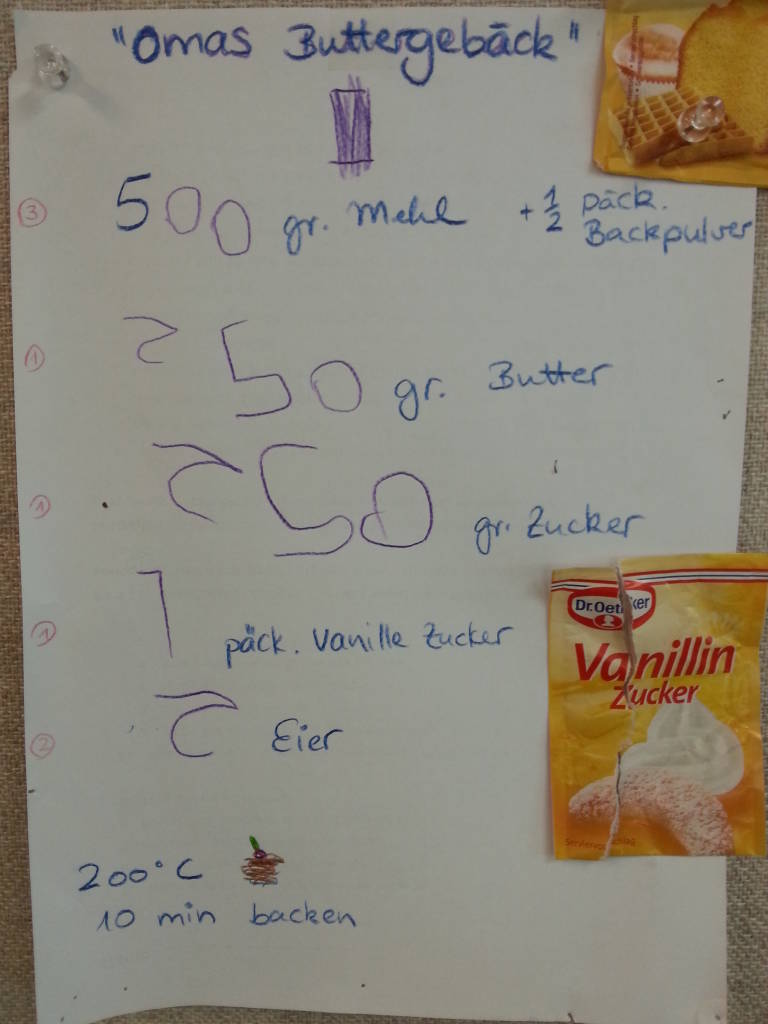 "Omas Buttergebäck"
③ 500 gr. Mehl + 1/2 päck. Backpulver
① 250 gr. Butter
① 250 gr. Zucker
① 1 päck. Vanille Zucker
② 2 Eier
200°C
10 min backen
Dr. Oetker
Vanillin
Zucker